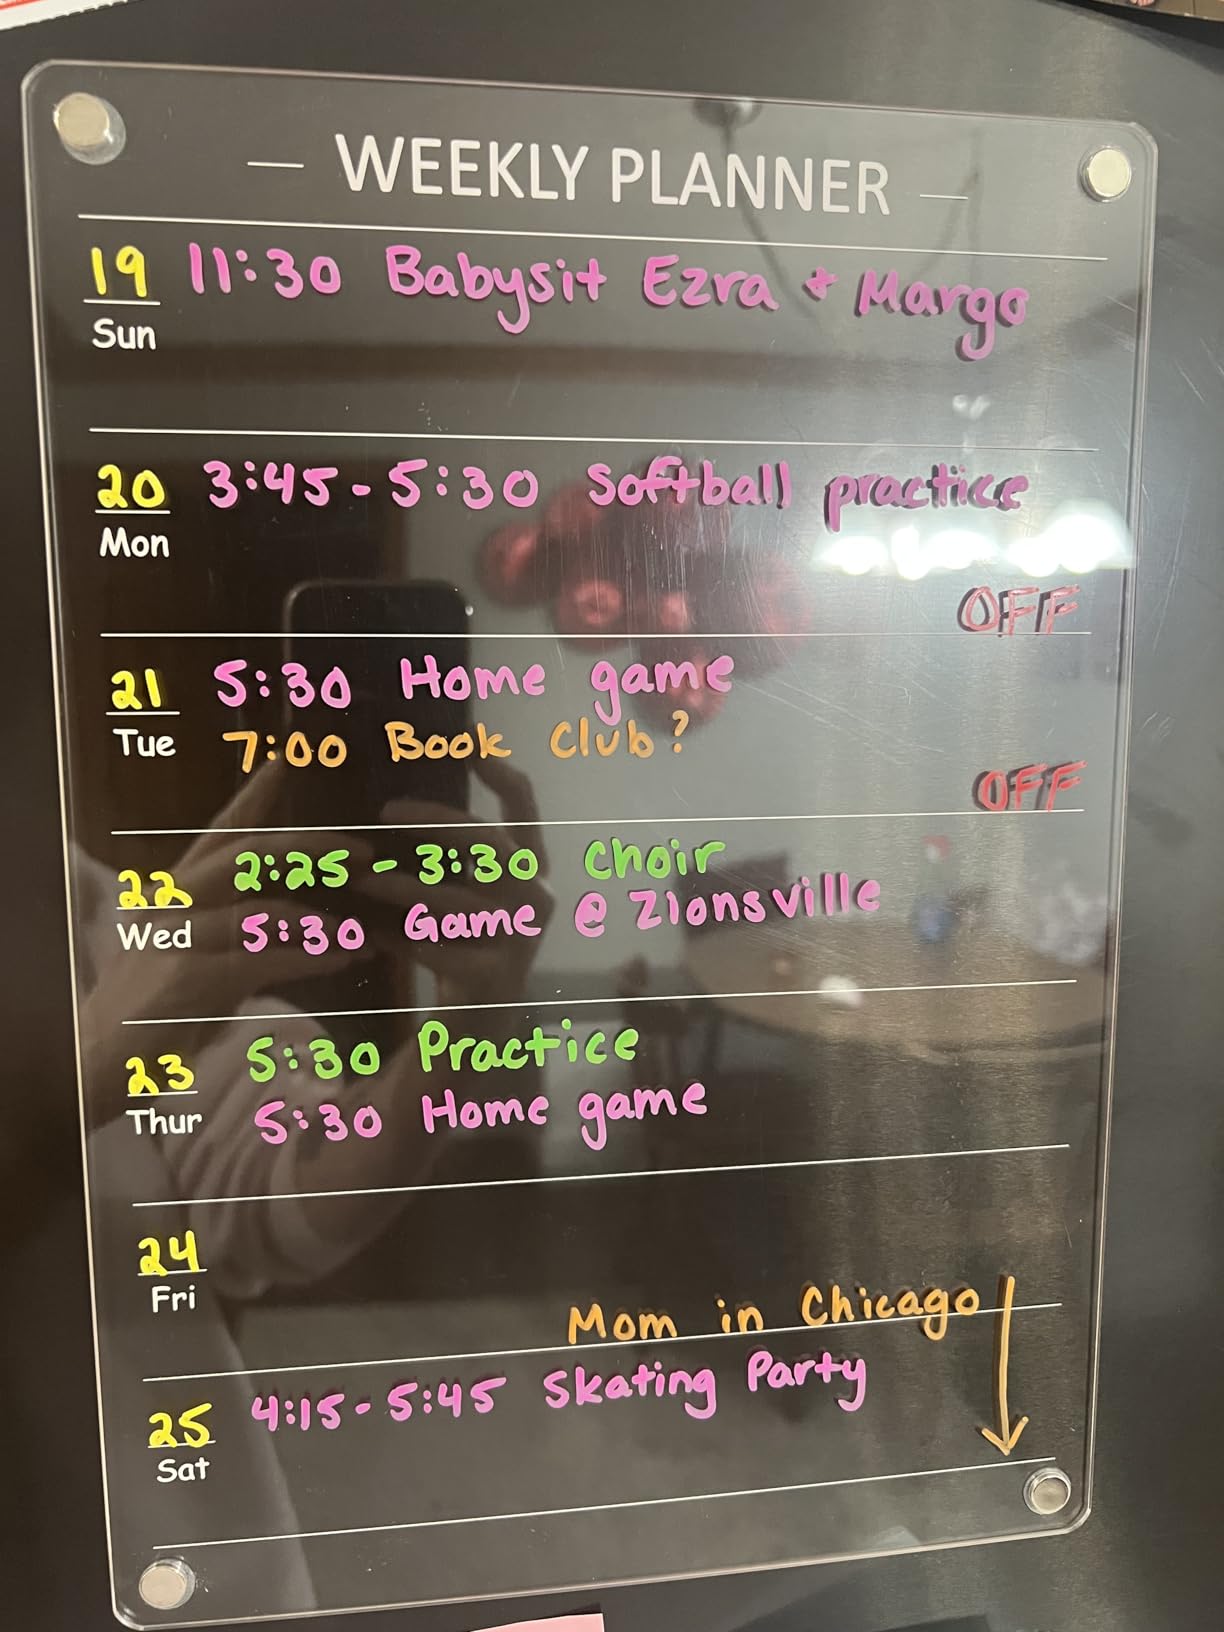 — WEEKLY PLANNER —
19 11:30 Babysit Ezra + Margo
Sun
20 3:45 - 5:30 Softball practice
Mon
OFF
21 5:30 Home game
Tue 7:00 Book Club?
OFF
2:25 - 3:30 choir
22
Wed 5:30 Game @ Zionsville
23 5:30 Practice
Thur 5:30 Home game
24
Fri
Mom in Chicago
25 4:15 - 5:45 Skating Party
Sat